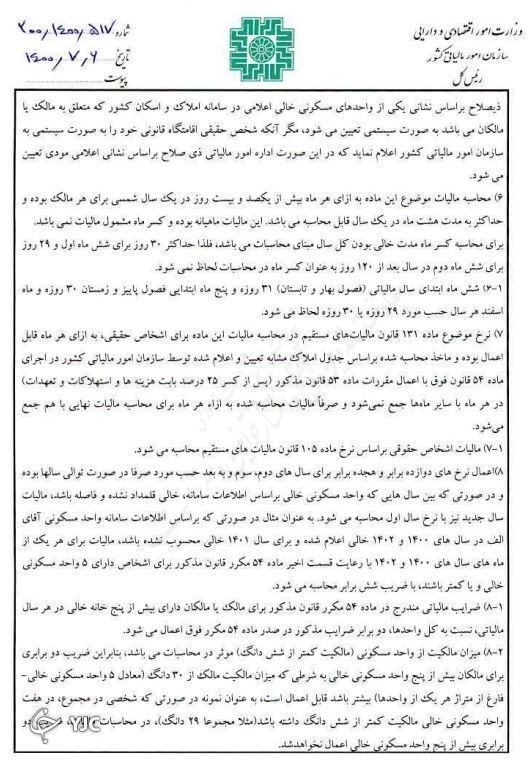 وزارت امور اقتصادی و دارایی
سازمان امور مالیاتی کشور
رئیس کل
شماره ۲۰۰/۱۴۰۰/۵۱۷
تاریخ ۱۴۰۰/۷/۶
پیوست
ذیصلاح براساس نشانی یکی از واحدهای مسکونی خالی اعلامی در سامانه املاک و اسکان کشور که متعلق به مالک یا
مالکان می باشد به صورت سیستمی تعیین می شود، مگر آنکه شخص حقیقی اقامتگاه قانونی خود را به صورت سیستمی به
سازمان امور مالیاتی کشور اعلام نماید که در این صورت اداره امور مالیاتی ذی صلاح براساس نشانی اعلامی مودی تعیین
می شود.
۶) محاسبه مالیات موضوع این ماده به ازای هر ماه بیش از یکصد و بیست روز در یک سال شمسی برای هر مالک بوده و
حداکثر به مدت هشت ماه در یک سال قابل محاسبه می باشد. این مالیات ماهیانه بوده و کسر ماه مشمول مالیات نمی باشد.
برای محاسبه کسر ماه مدت خالی بودن کل سال مبنای محاسبات می باشد، فلذا حداکثر ۳۰ روز برای شش ماه اول و ۲۹ روز
برای شش ماه دوم در سال بعد از ۱۲۰ روز به عنوان کسر ماه در محاسبات لحاظ نمی شود.
۶-۱) شش ماه ابتدای سال مالیاتی (فصول بهار و تابستان) ۳۱ روزه و پنج ماه ابتدایی فصول پاییز و زمستان ۳۰ روزه و ماه
اسفند هر سال حسب مورد ۲۹ روزه یا ۳۰ روزه لحاظ می شود.
۷) نرخ موضوع ماده ۱۳۱ قانون مالیات‌های مستقیم در محاسبه مالیات این ماده برای اشخاص حقیقی، به ازای هر ماه قابل
اعمال بوده و ماخذ محاسبه شده براساس جدول املاک مشابه تعیین و اعلام شده توسط سازمان امور مالیاتی کشور در اجرای
ماده ۵۴ قانون فوق با اعمال مقررات ماده ۵۳ قانون مذکور (پس از کسر ۲۵ درصد بابت هزینه ها و استهلاکات و تعهدات)
در هر ماه با سایر ماه‌ها جمع نمی‌شود و صرفاً مالیات محاسبه شده به ازاء هر ماه برای محاسبه مالیات نهایی با هم جمع
می‌شود.
۷-۱) مالیات اشخاص حقوقی براساس نرخ ماده ۱۰۵ قانون مالیات های مستقیم محاسبه می شود.
۸)اعمال نرخ های دوازده برابر و هجده برابر برای سال های دوم، سوم و به بعد حسب مورد صرفا در صورت توالی سالها بوده
و در صورتی که بین سال هایی که واحد مسکونی خالی براساس اطلاعات سامانه، خالی قلمداد نشده و فاصله باشد، مالیات
سال جدید نیز با نرخ سال اول محاسبه می شود. به عنوان مثال در صورتی که براساس اطلاعات سامانه واحد مسکونی آقای
الف در سال های ۱۴۰۰ و ۱۴۰۲ خالی اعلام شده و برای سال ۱۴۰۱ خالی محسوب نشده باشد، مالیات برای هر یک از
ماه های سال های ۱۴۰۰ و ۱۴۰۲ با رعایت قسمت اخیر ماده ۵۴ مکرر قانون مذکور برای اشخاص دارای ۵ واحد مسکونی
خالی و یا کمتر باشند، با ضریب شش برابر محاسبه می شود.
۸-۱) ضرایب مالیاتی مندرج در ماده ۵۴ مکرر قانون مذکور برای مالک یا مالکان دارای بیش از پنج خانه خالی در هر سال
مالیاتی، نسبت به کل واحدها، دو برابر ضرایب مذکور در صدر ماده ۵۴ مکرر فوق اعمال می شود.
۸-۲) میزان مالکیت از واحد مسکونی (مالکیت کمتر از شش دانگ) موثر در محاسبات می باشد، بنابراین ضریب دو برابری
برای مالکان بیش از پنج واحد مسکونی خالی به شرطی که میزان مالکیت مالک از ۳۰ دانگ (معادل ۵ واحد مسکونی خالی-
فارغ از متراژ هر یک از واحدها) بیشتر باشد قابل اعمال است، به عنوان نمونه در صورتی که شخصی در مجموع، در هفت
واحد مسکونی خالی مالکیت کمتر از شش دانگ داشته باشد(مثلا مجموعا ۲۹ دانگ)، در محاسبات دو
برابری بیش از پنج واحد مسکونی خالی اعمال نخواهدشد.
YJC